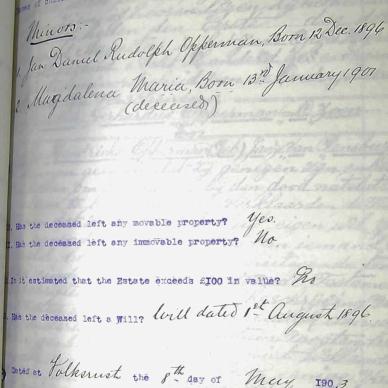 Minors:-
1. Jan Daniel Rudolph Opperman, Born 12 Dec. 1896
2. Magdalena Maria, Born 13rd January 1901
(deceased)
Has the deceased left any movable property? Yes.
Has the deceased left any immovable property? No
Is it estimated that the Estate exceeds £100 in value?
Has the deceased left a Will? Will dated 1st August 1896
Dated at Volksrust the 8th day of May 190